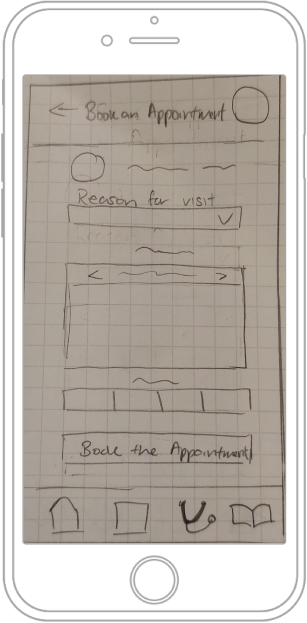 ← Book an Appointment
Reason for visit
< >
Book the Appointment